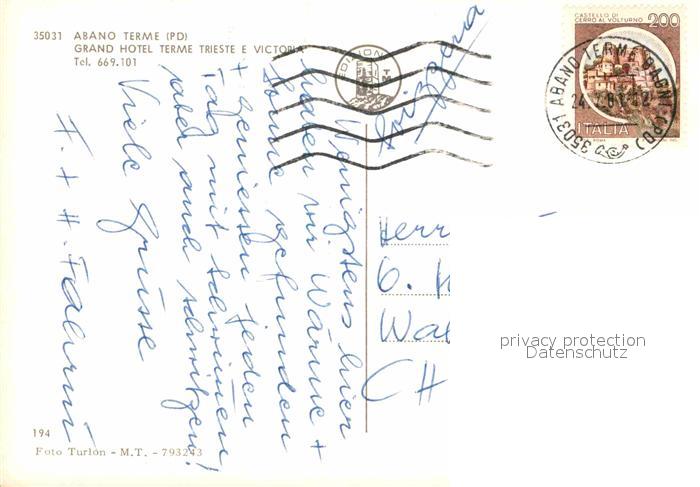 35031 ABANO TERME (PD)
GRAND HOTEL TERME TRIESTE E VICTORIA
Tel. 669.101
Wenigstens hier
haben wir Wärme +
Sonne gefunden
+ geniessen jeden
Tag mit schwimmen
aber auch schwitzen!
Viele Grüsse
F. + H.
CASTELLO DI
CERRO AL VOLTURNO
200
ITALIA
35031 ABANO TERME BAGNI (PD)
EDIZIONI
M T
Herr
6.
CH
privacy protection
Datenschutz
194
Foto Turlon - M.T. - 793243